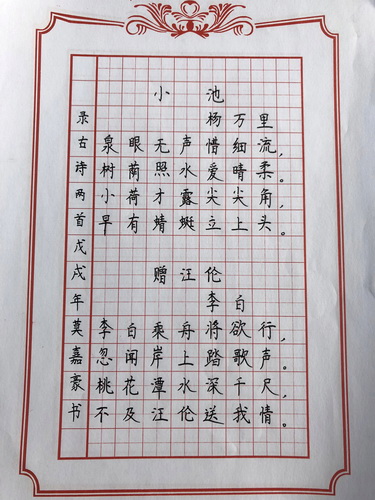 小池
杨万里
泉眼无声惜细流，
树荫照水爱晴柔。
小荷才露尖尖角，
早有蜻蜓立上头。
赠汪伦
李白
李白乘舟将欲行，
忽闻岸上踏歌声。
桃花潭水深千尺，
不及汪伦送我情。
录古诗两首戊戌年莫嘉豪书